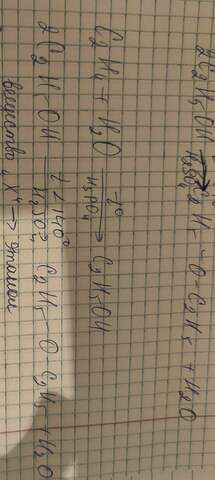 2C₂H₅OH →(H₂SO₄) C₂H₅-O-C₂H₅ + H₂O
C₂H₄ + H₂O →(t°, H₃PO₄) C₂H₅OH
2C₂H-OH →(t<140°, H₂SO₄) C₂H₅-O-C₂H₅ + H₂O
вещество "X" → этанол